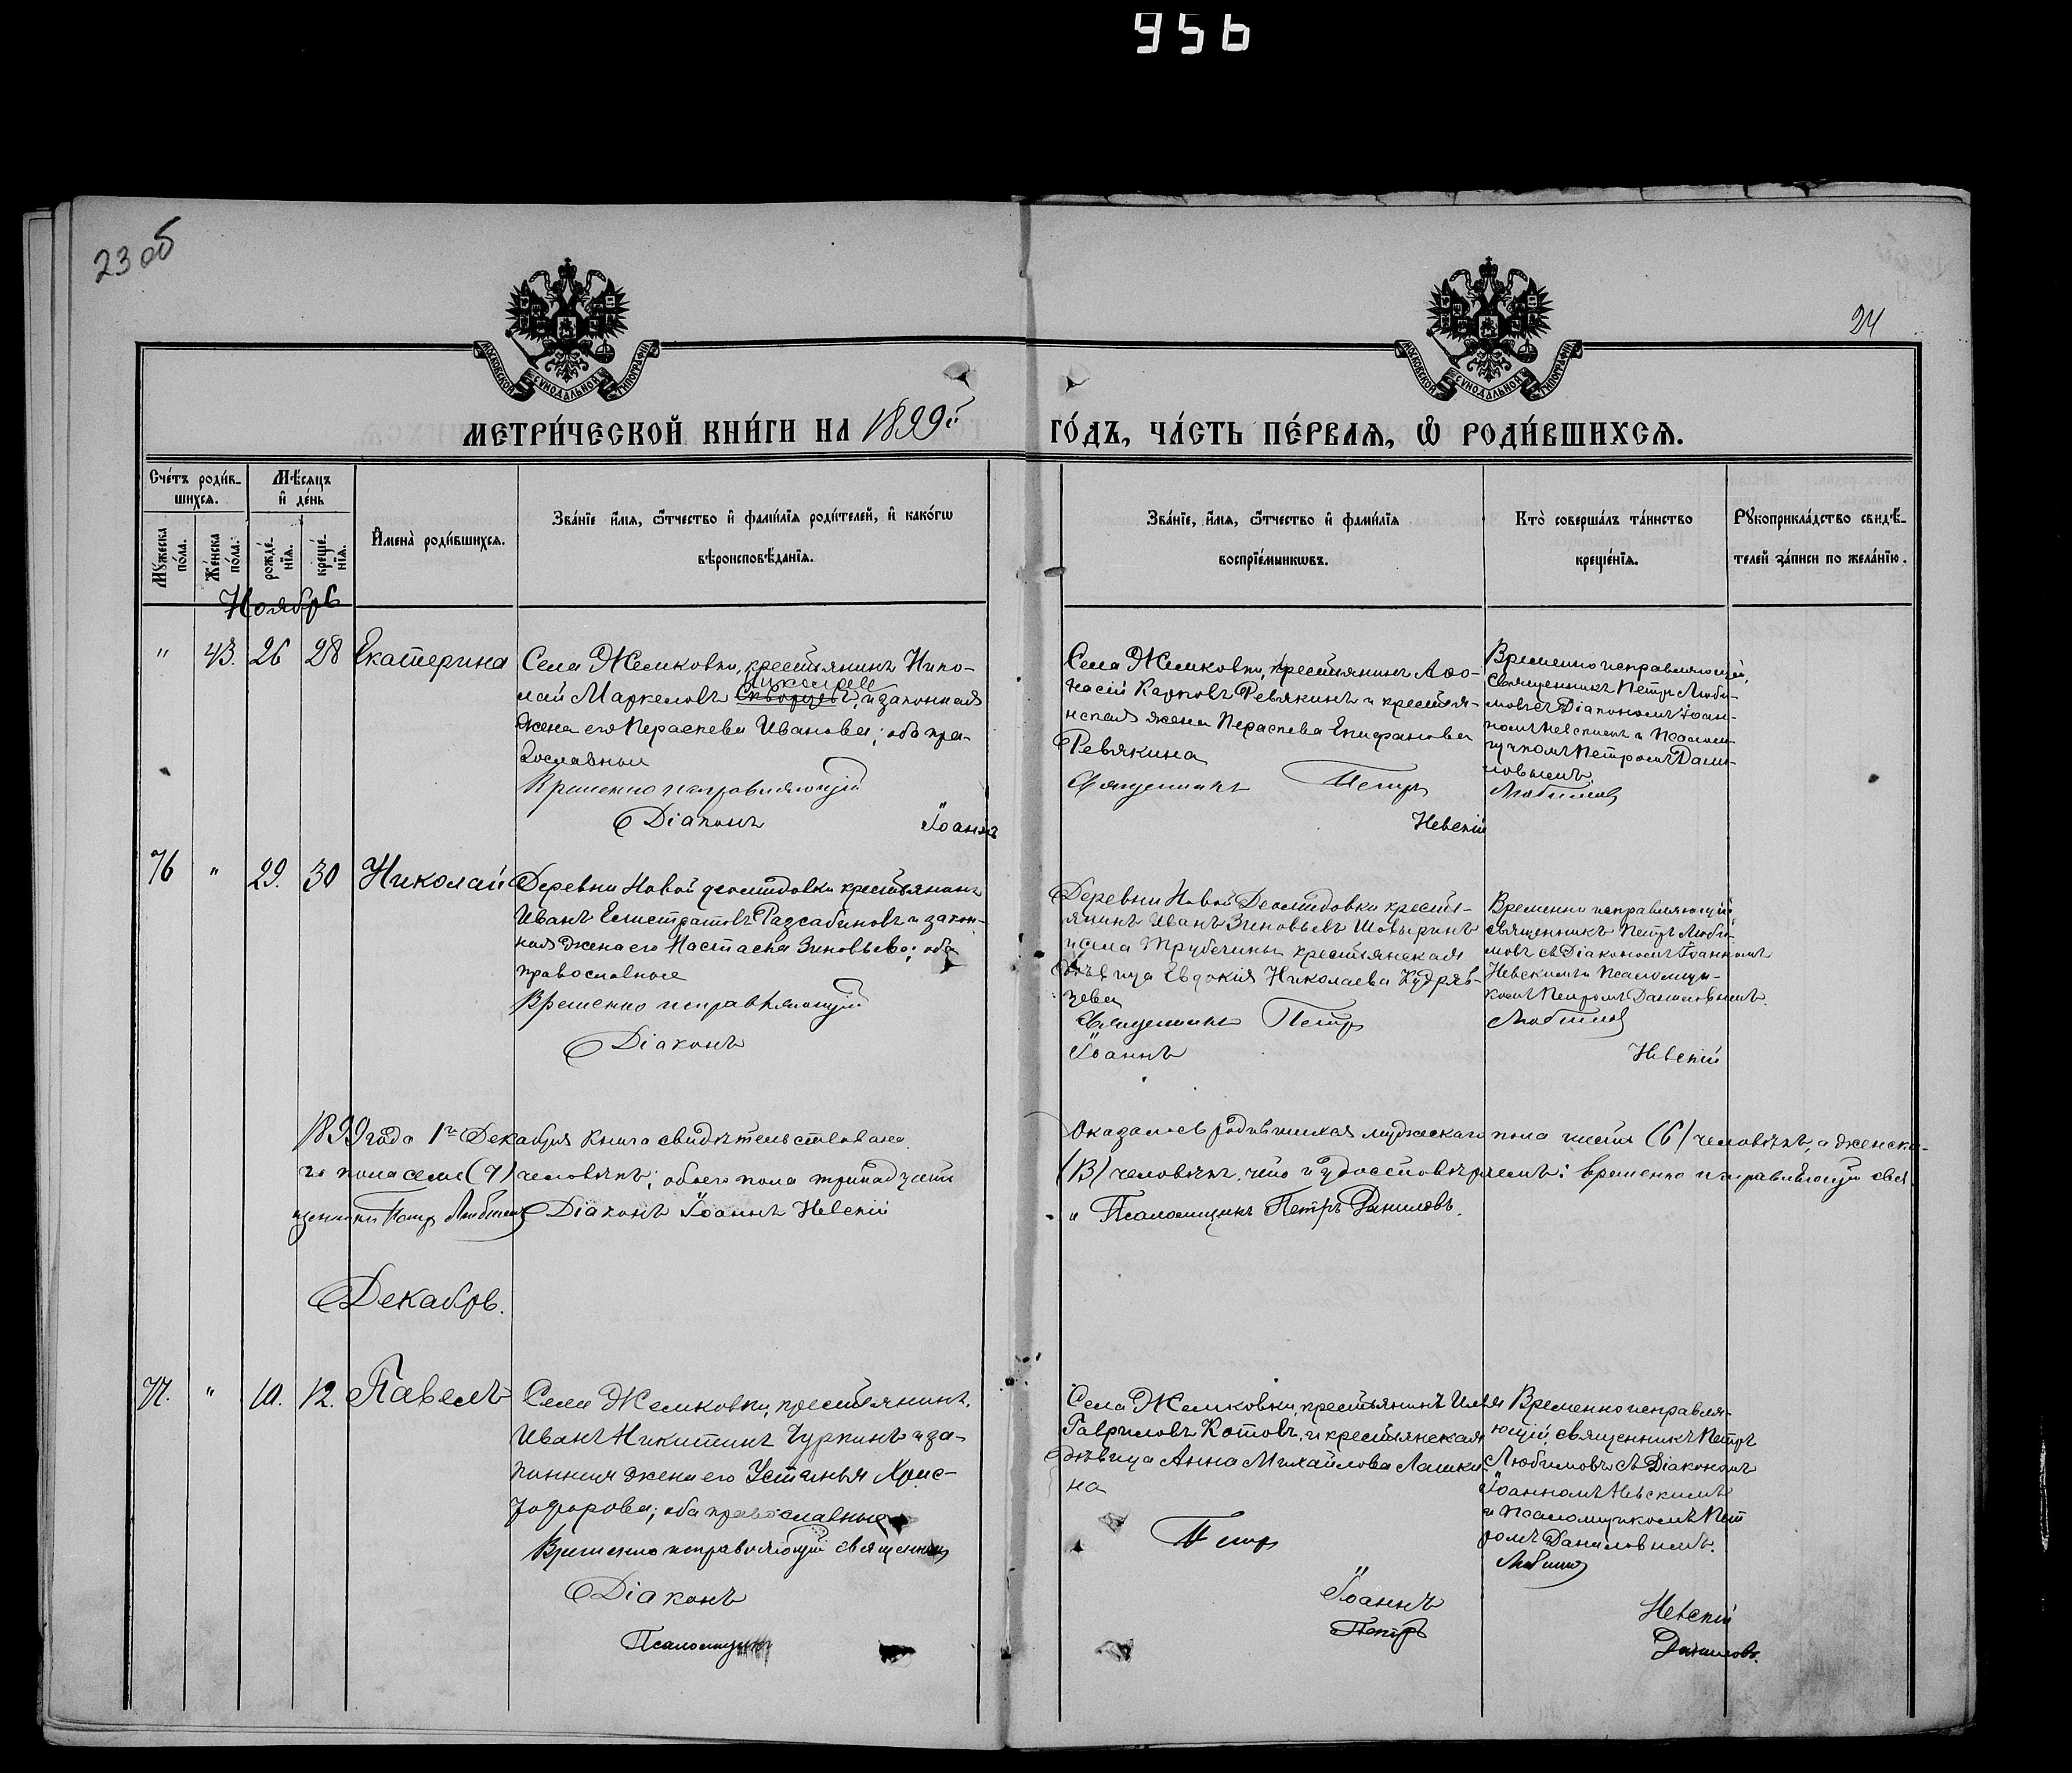 956
23 об
24
МОСКОВСКОЙ СѴНОДАЛЬНОЙ ТИПОГРАФІИ
МОСКОВСКОЙ СѴНОДАЛЬНОЙ ТИПОГРАФІИ
МЕТРИ́ЧЕСКОЙ КНИ́ГИ НА 1899й ГО́ДЪ, ЧА́СТЬ ПЕ́РВАѦ, Ѡ҆ РОДИ́ВШИХСѦ.
Сче́тъ роди́в-
шихсѧ.
Мѣ́сѧцъ
и҆ де́нь
Мꙋ́жеска
по́ла.
Же́нска
по́ла.
рожде́-
нїѧ.
креще́-
нїѧ.
И҆мена̀ роди́вшихсѧ.
Зва́нїе и҆́мѧ, ѻ҆́тчество и҆ фами́лїѧ роди́телей, и҆ како́гѡ
вѣроисповѣ́данїѧ.
Зва́нїе, и҆́мѧ, ѻ҆́тчество и҆ фами́лїѧ
воспрїе́мникѡвъ.
Кто̀ соверша́лъ та́инство
креще́нїѧ.
Рꙋкоприкла́дство свидѣ́-
телей за́писи по жела́нїю.
Ноябрь
" 43. 26 28 Екатерина
Села Жемковки, крестьянинъ Нико-
лай Маркеловъ Скворцевъ, и законная
жена его Параскева Иванова; оба пра-
вославные
Временно исправляющій
Діаконъ Іоаннъ
Села Жемковки, крестьянинъ Аѳо-
насій Карповъ Ревякинъ и крестья-
нская жена Параскева Епифанова
Ревякина
Священникъ Петръ
Невскій
Временно исправляющій,
Священникъ Петръ Люби-
мовъ съ Діакономъ Іоан-
номъ Невскимъ и Псалом-
щикомъ Петромъ Дани-
ловымъ.
Любимовъ
76 " 29. 30 Николай
Деревни Новой Демидовки крестьянинъ
Иванъ Елистратовъ Разсабиновъ и закон-
ная жена его Настасья Зиновьева; оба
православные
Временно исправляющій
Діаконъ
Деревни Новой Демидовки кресть-
янинъ Иванъ Зиновьевъ Шовыринъ
и села Трубетчины крестьянская
дѣвица Евдокія Николаева Кудряв-
цева
Священникъ Петръ
Іоаннъ
Невскій
Временно исправляющій,
священникъ Петръ Люби-
мовъ съ Діакономъ Іоанномъ
Невскимъ и Псаломщи-
комъ Петромъ Даниловымъ.
Любимовъ
1899 года 1го Декабря Книга свидѣтельствована. Оказалось родившихся мужескаго пола шесть (6) человѣкъ, а женска-
го пола семь (7) человѣкъ; обоего пола тринадцать (13) человѣкъ, что и удостовѣряемъ: временно исправляющій свя-
щенникъ Петръ Любимовъ Діаконъ Іоаннъ Невскій и Псаломщикъ Петръ Даниловъ.
Декабрь.
77. " 10. 12. Павелъ
Села Жемковки, крестьянинъ,
Иванъ Никитинъ Чуркинъ и за-
конная жена его Устинья Хрис-
тофорова; оба православные
Временно исправляющій священникъ
Діаконъ
Псаломщикъ
Села Жемковки, крестьянинъ Илья
Гавриловъ Котовъ, и крестьянская
дѣвица Анна Михайлова Лашки-
на
Петръ
Іоаннъ
Петръ
Временно исправля-
ющій, священникъ Петръ
Любимовъ съ Діакономъ
Іоанномъ Невскимъ
и Псаломщикомъ Пет
ромъ Даниловымъ.
Любимовъ
Невскій
Даниловъ.